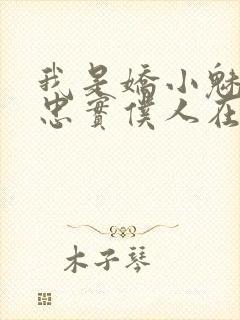 我是嬌小魅
忠實僕人在
木子琴